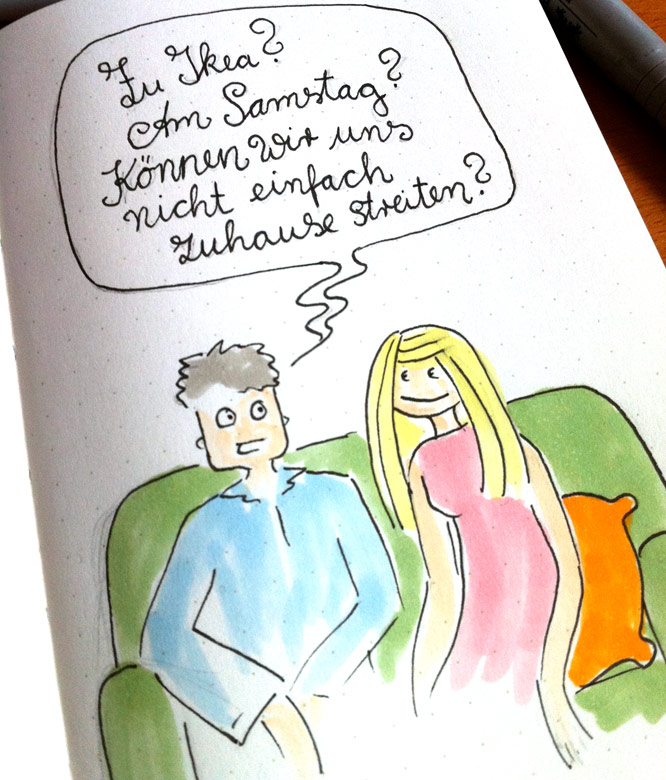 Zu Ikea?
Am Samstag?
Können wir uns
nicht einfach
zuhause streiten?